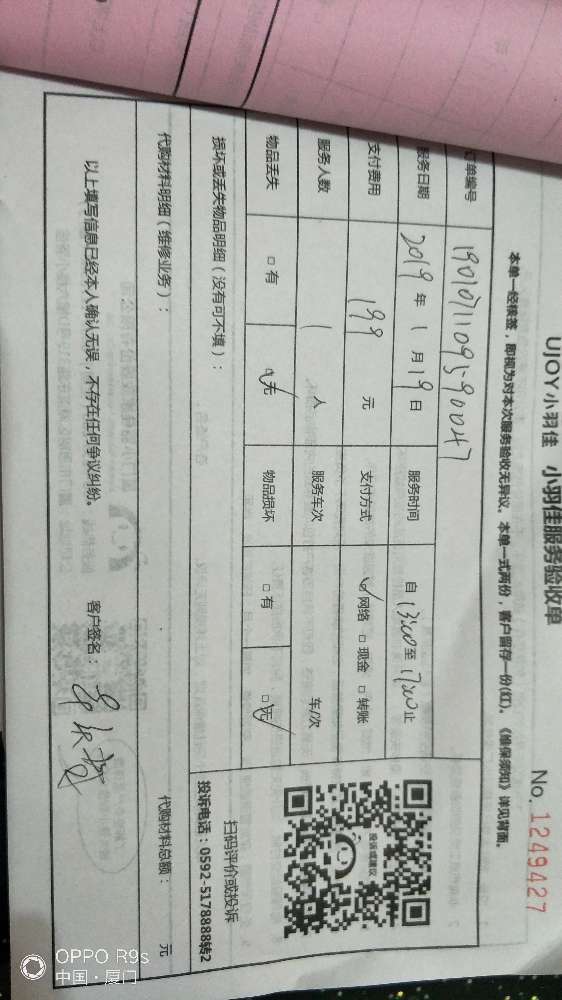 UJOY小羽佳 小羽佳服务验收单
No. 1249427
本单一经核签，即视为对本次服务验收无异议。本单一式两份，客户留存一份(红)。《维保须知》详见背面。
订单编号 190107110959 0047
服务日期 2019年1月19日 服务时间 自13:00至17:00止
支付费用 199 元 支付方式 ☑网络 □现金 □转账
服务人数 1 人 服务车次 车/次
物品丢失 □有 ☑无 物品损坏 □有 ☑无
损坏或丢失物品明细（没有可不填）：
投诉或建议
扫码评价或投诉
投诉电话：0592-5178888转2
代购材料明细（维修业务）：
代购材料总额： 元
以上填写信息已经本人确认无误，不存在任何争议纠纷。 客户签名：
OPPO R9s
中国·厦门